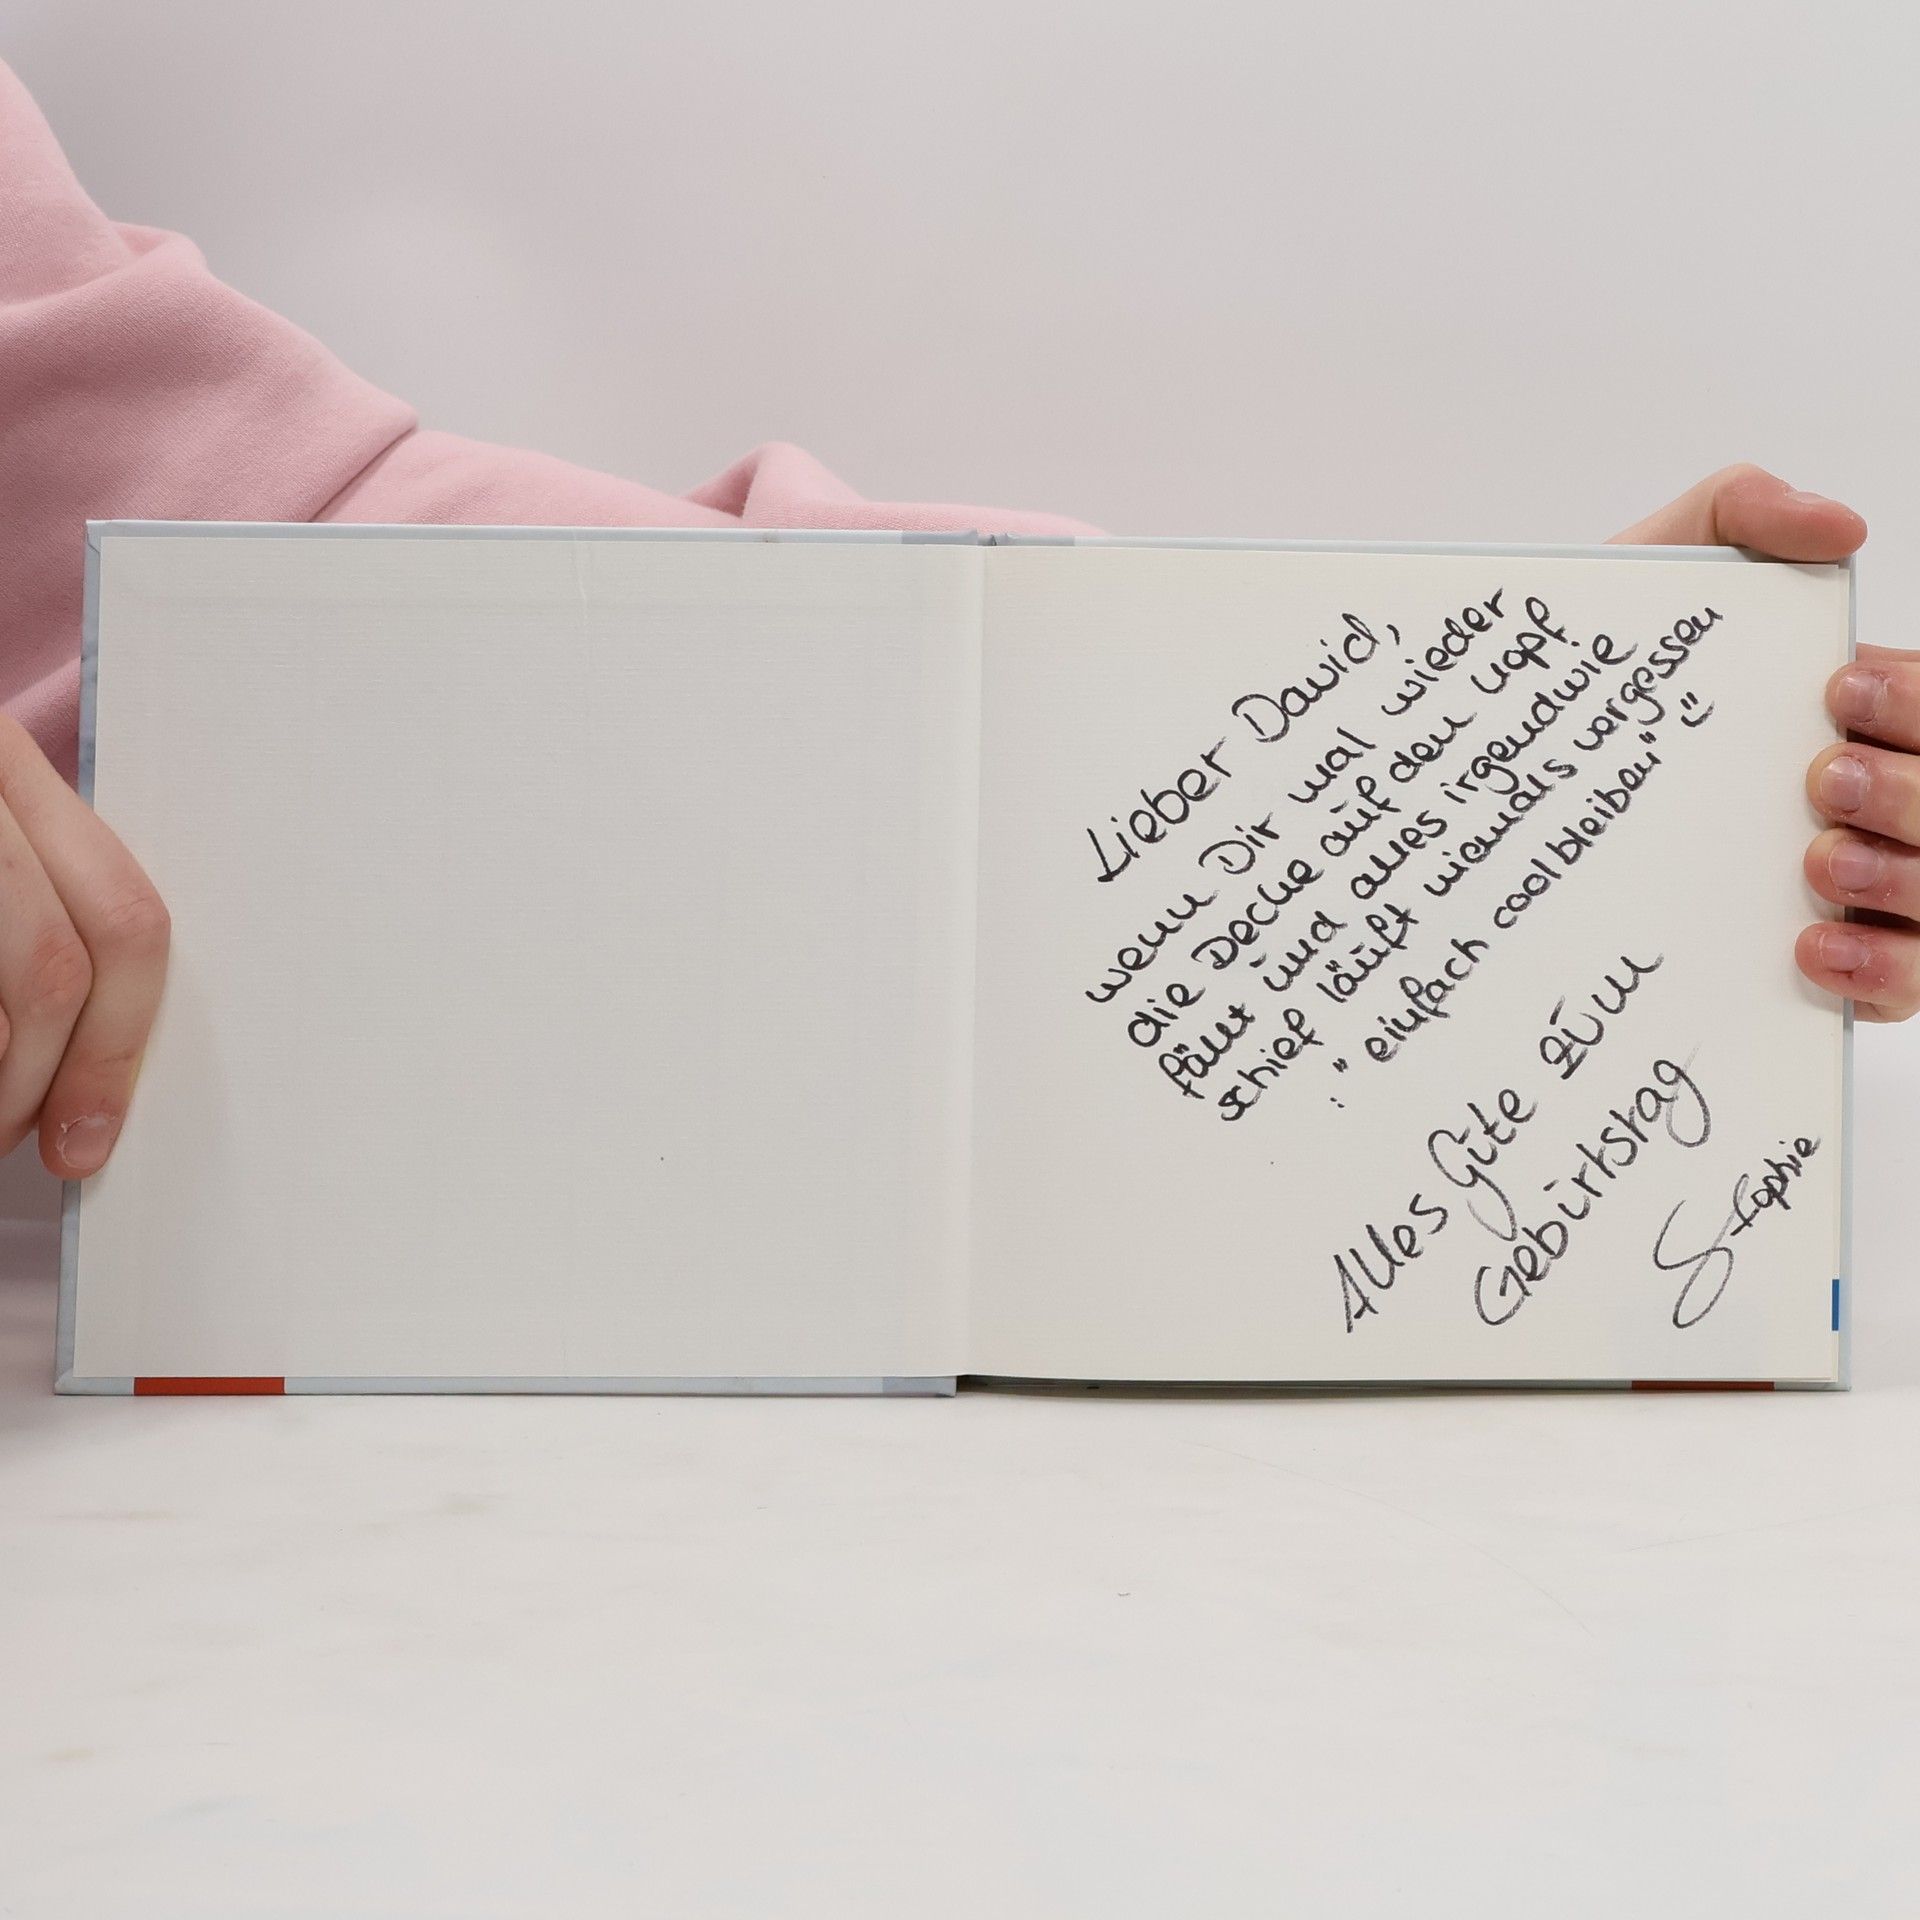 Lieber David,
wenn Dir mal wieder
die Decke auf den Kopf
fällt und alles irgendwie
schief läuft niemals vergessen
: "einfach cool bleiben" :)
Alles Gute zum
Geburtstag